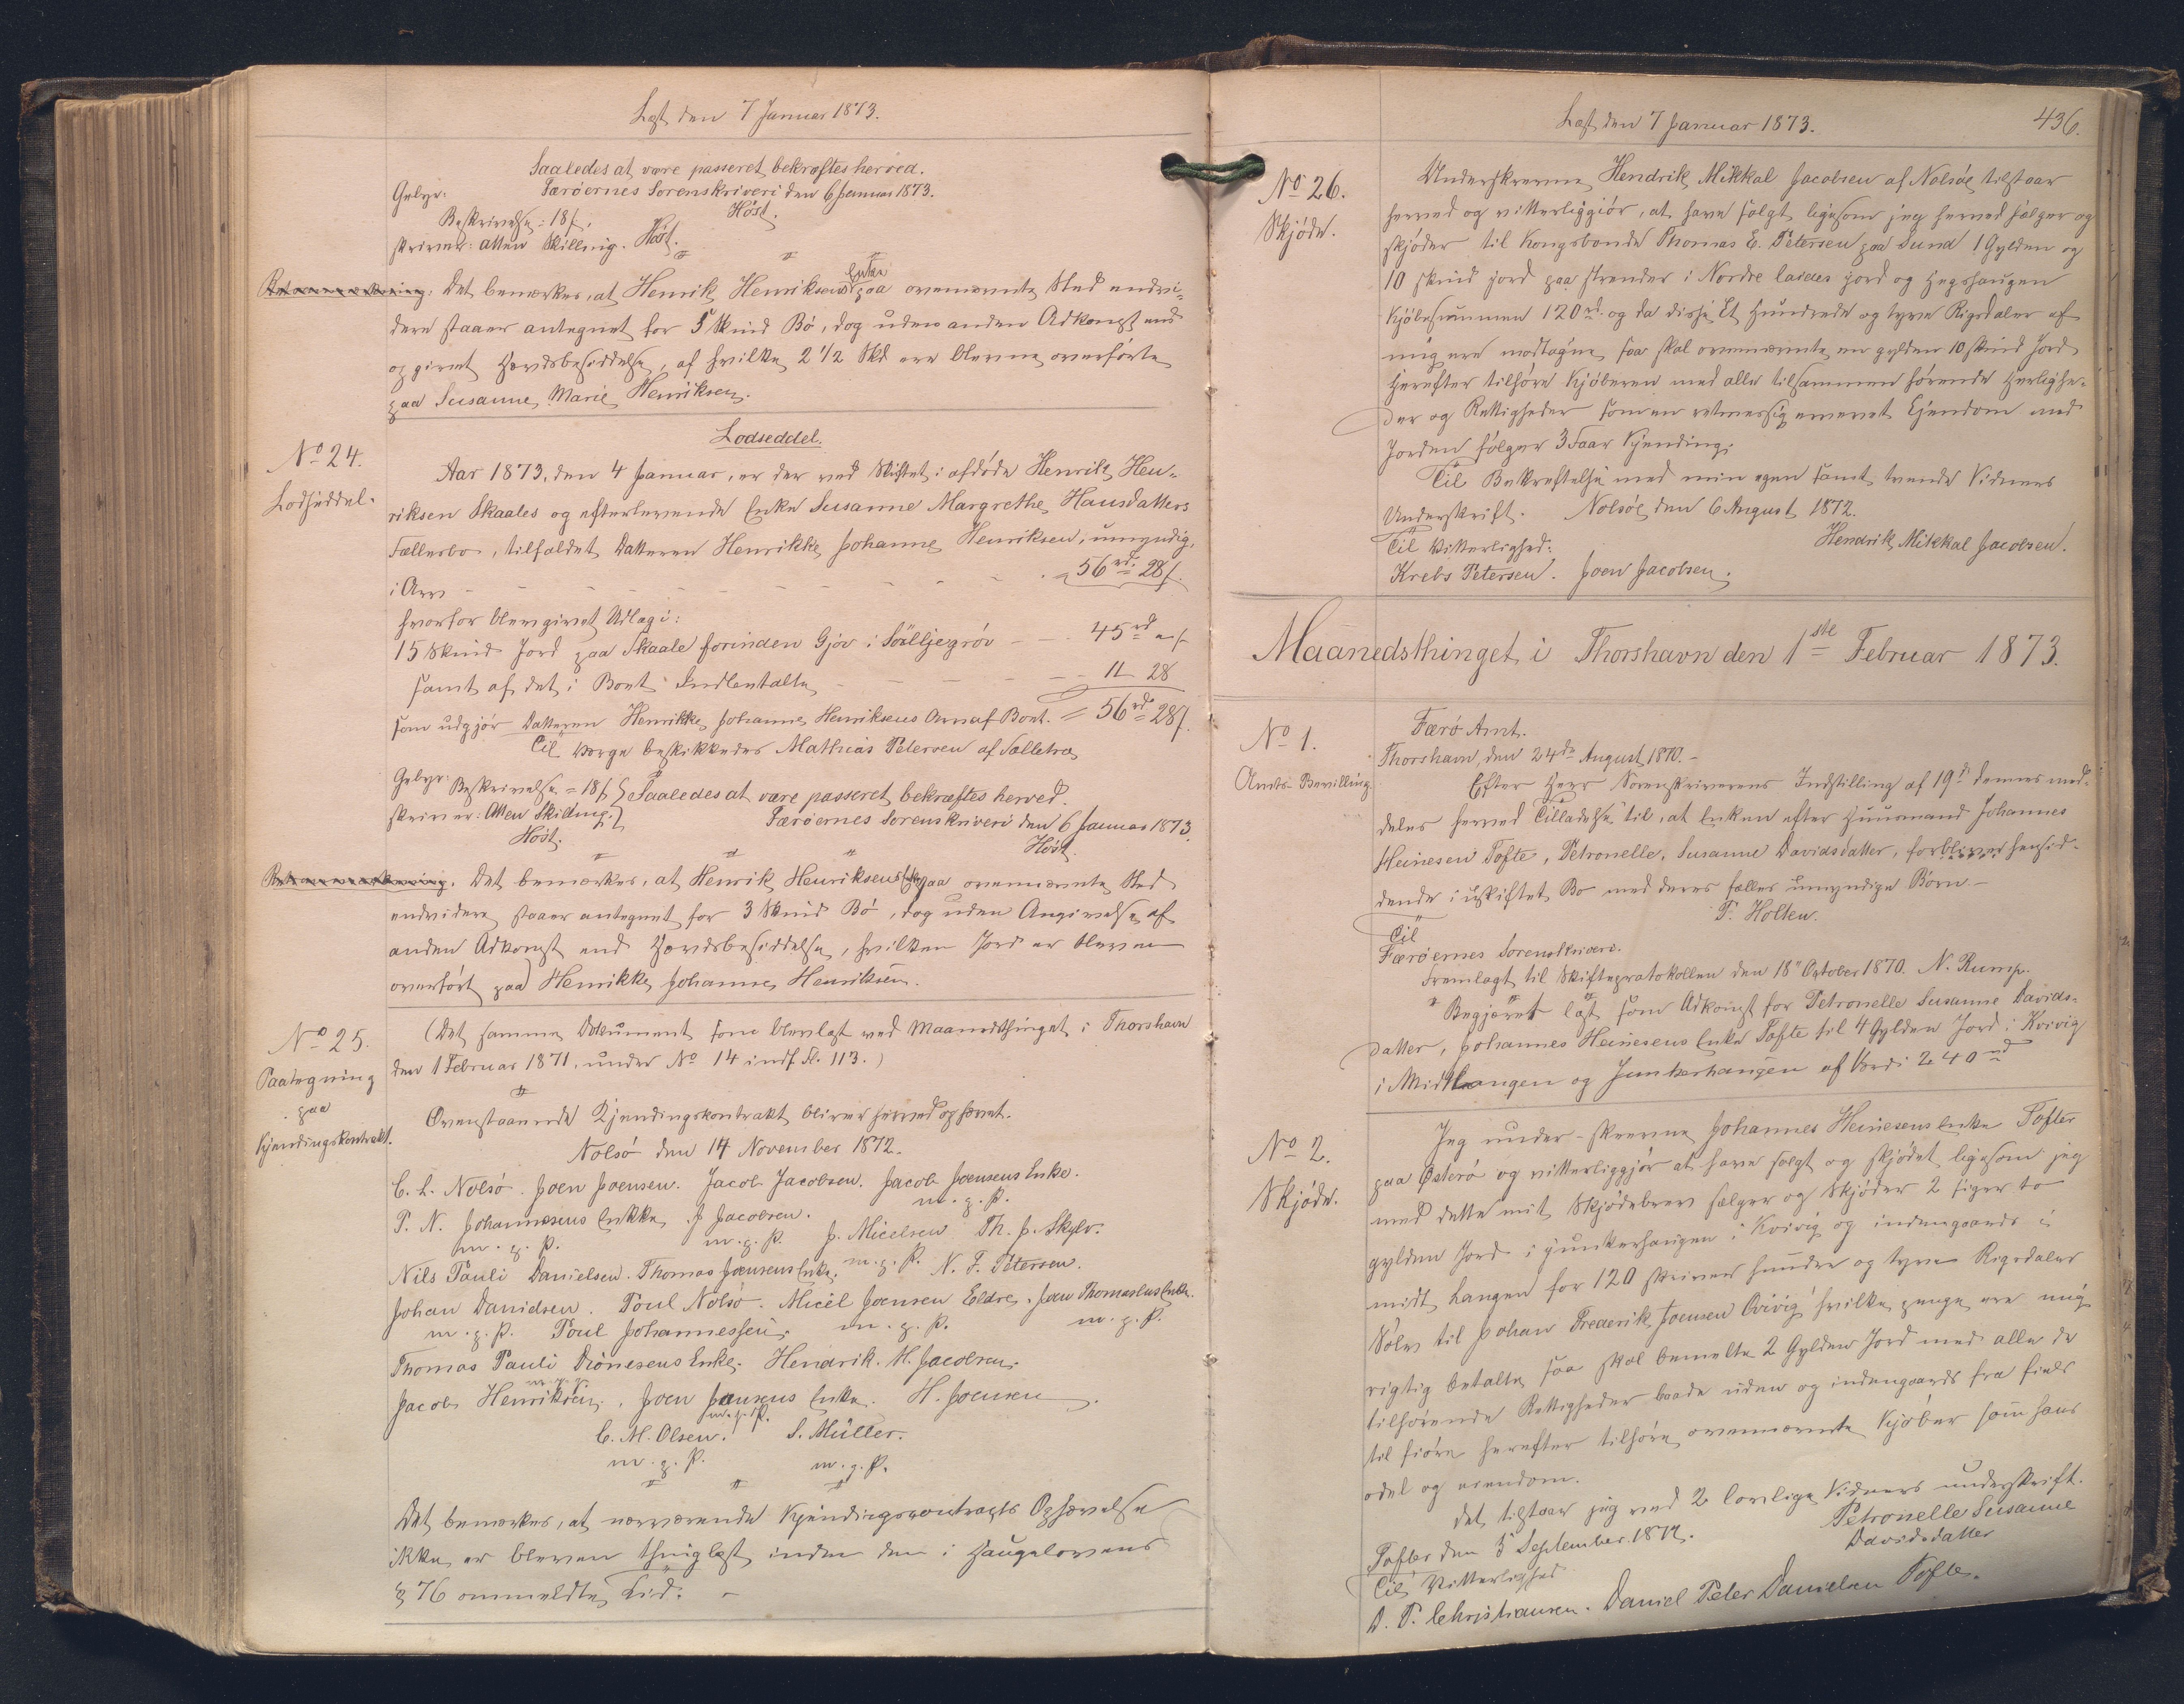 Læst den 7 Januar 1873.
Saaledes at være passeret bekræftes herved.
Færöernes Sorenskriveri den 6 Januar 1873.
Höst.
Gebyr:
Beskrivelse: 18 s.
skriver: atten Skilling. Höst.
Det bemærkes, at Henrik Henriksens Enke paa ovennævnte Sted endvi-
dere staaer antegnet for 5 Skind Bö, dog uden anden Adkomst end
opgivet Hævdsbesiddelse, af hvilke 2 1/2 Skd ere blevne overförte
paa Susanne Marie Henriksen.
Lodseddel.
No 24.
Lodseddel.
Aar 1873, den 4 Januar, er der ved Skiftet i afdöde Henrik Hen-
riksen Skaales og efterlevende Enke Susanne Margrethe Hansdatters
Fællesbo, tilfaldet Datteren Henrikke Johanne Henriksen, umyndig,
i Arv - - - - - - = 56 rd. 28 s.
hvorfor blev givet Udlæg i:
15 Skind Jord paa Skaale forinden Gjov i - - 45 rd " s
samt af det i Boet Indbetalte - - - - 11 - 28
som udgjör Datteren Henrikke Johanne Henriksens Arv af Boet. = 56 rd. 28 s.
Til Værge beskikkedes Mathias Petersen af Selletræ
Gebyr: Beskrivelse = 18 s. Saaledes at være passeret bekræftes herved.
skriver: Atten Skilling. Færöernes Sorenskriveri den 6 Januar 1873
Höst. Höst.
Det bemærkes, at Henrik Henriksens Enke paa ovennævnte Sted
endvidere staaer antegnet for 3 Skind Bö, dog uden Angivelse af
anden Adkomst end Hævdsbesiddelse, hvilken Jord er bleven
overfört paa Henrikke Johanne Henriksen.
No 25.
Paategning
paa
Kjendingskontrakt.
(Det samme Dokument som blev læst ved Maanedsthinget i Thorshavn
den 1 Februar 1871, under No 14 indf. Fl. 113.)
Ovenstaaende Kjendingskontrakt bliver herved ophævet.
Nolsö den 14 November 1872.
C. L. Nolsö. Joen Joensen. Jacob Jacobsen. Jacob Joensens Enke.
m. g. P.
P. N. Johannesens Enkke J Jacobsen.
m. g. P. m. g. P. J. Micelsen Th. J. Skylv.
Nils Pauli Danielsen. Thomas Joensens Enke. m. g. P. N. F. Petersen.
Johan Danidsen. Poul Nolsö. Micel Joensen Eldre. Joen Thomasens Enke.
m. g. P. Poul Johannessen. m. g. P. m. g. P.
Thomas Pauli Diönesens Enke. Hendrik. M. Jacobsen.
m. g. P.
Jacob Henriksen, Joen Joensens Enke. H. Joensen.
m. g. P.
C. M. Olsen. S. Müller.
m. g. P. m. g. P.
Det bemærkes, at nærværende Kjendingscontracts Ophævelse
ikke er bleven thinglæst inden den i Haugelovens
§ 76 ommeldte Tid. -
Læst den 7 Januar 1873.
436.
No 26.
Skjöde.
Underskrevne Hendrik Mikkal Jacobsen af Nolsöe tilstaar
herved og vitterliggiör, at have solgt ligesom jeg herved sælger og
skjöder til Kongsbonde Thomas E. Petersen paa Sund 1 Gylden og
10 skind jord paa strender i Nordre jord og
Kjöbesummen 120 rd. og da disse Et Hundrede og tyve Rigsdaler af
mig ere modtagne, saa skal ovennævnte en gylden 10 skind Jord
herefter tilhöre Kjöberen med alle tilsammen hörende Herlighe-
der og Rettigheder som en retmessig erervet Ejendom med
Jorden fölger 3 Faar Kjending.
Til Bekreftelse med min egen samt tvende Vidners
Underskrift. Nolsöe den 6 August 1872.
Til Vitterlighed: Hendrik Mikkal Jacobsen.
Krebs Petersen. Joen Jacobsen.
Maanedsthinget i Thorshavn den 1ste Februar 1873.
No 1.
Amts-Bevilling.
Færö Amt.
Thorshavn, den 24de August 1870. -
Efter Herr Sorenskriverens Indstilling af 19de dennes med-
deles herved Tilladelse til, at Enken efter Huusmand Johannes
Heinesen Tofte, Petronelle, Susanne Davidsdatter, forbliver hensid-
dende i uskiftet Bo med deres fælles umyndige Börn. -
P. Holten.
Til
Færöernes Sorenskriveri.
Fremlagt til Skifteprotokollen den 18 October 1870. N. Rump.
Begjæret læst som Adkomst for Petronelle Susanne Davids-
datter, Johannes Heinesens Enke Tofte til 4 Gylden Jord i Kvivig
i Midtlangen og Junkerhaugen af Værdi 240 rd
No 2.
Skjöde.
Jeg under-skrevne Johannes Heinesens Enke Tofter
paa Österö og vitterliggjör at have solgt og skjödet, ligesom jeg
med dette mit Skjödebrev sælger og Skjöder 2 siger to
gylden Jord i junkerhaugen i Kvivig og indengaards i
midt Langen for 120 skriver hundre og tyve Rigsdaler
Sölv til Johan Frederik Joensen Qvivig hvilke penge ere mig
rigtig betalte, saa skal bemelte 2 Gylden Jord med alle de
tilhörende Rettigheder baade uden og indengaards fra field
til fiöre herefter tilhöre ovennævnte Kjöber som hans
odel og eiendom.
Det tilstaar jeg med 2 lovlige Vidners underskrift.
Tofter den 5 September 1872. Petronelle Susanne
Davidsdatter
Til Vitterlighed
D. P. Christiansen. Daniel Peter Danielsen Tofte.